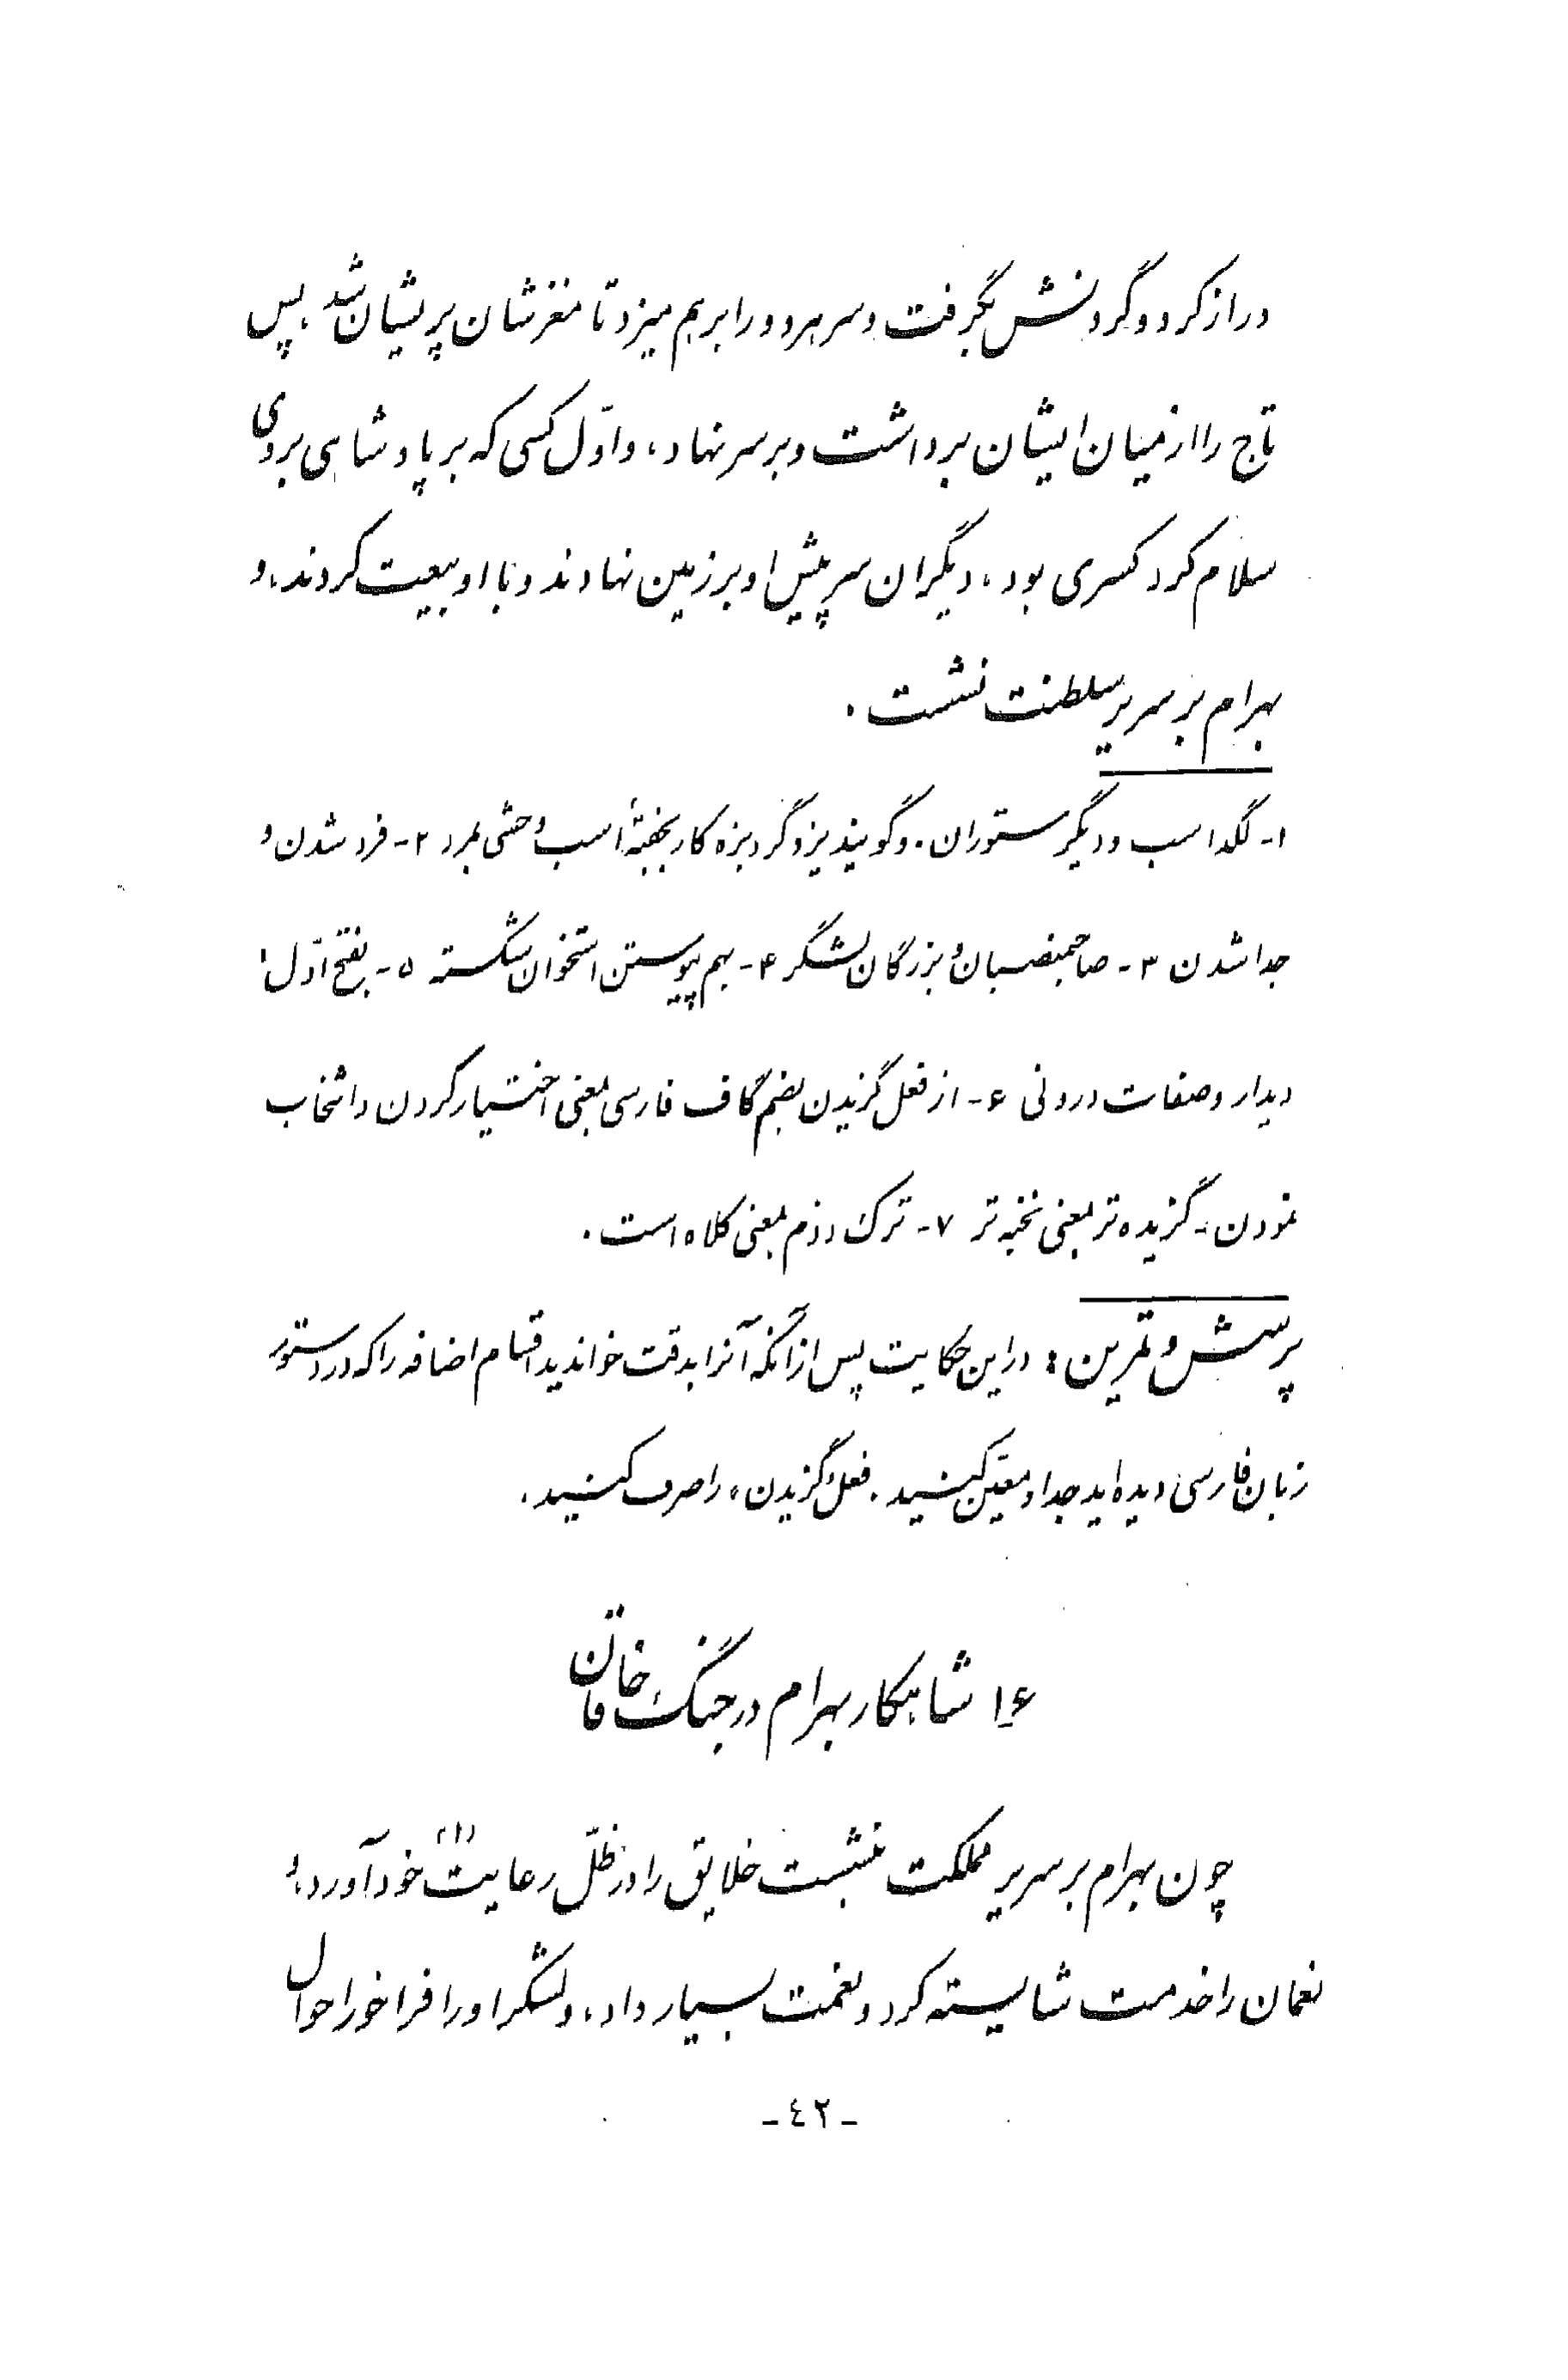 دراز کرد و گردنش بگرفت و سر هر دو را بر هم میزد تا مغزشان پریشان شد، پس
تاج را از میان ایشان برداشت و بر سر نهاد، و اوّل کسی که بر پادشاهی بروی
سلام کرد کسری بود، دیگران سر پیش او بر زمین نهادند و با او بیعت کردند، و
بهرام بر سریر سلطنت نشست.
۱- لگد اسب و دیگر ستوران. و گویند یزدگرد بزه کار بجفتهٔ اسب وحشی بمرد ۲- فرد شدن و
جدا شدن ۳- صاحبمنصبان و بزرگان لشگر ۴- بهم پیوستن استخوان شکسته ۵- بفتح اوّل:
دیدار و صفات درونی ۶- از فعل گزیدن بضم گاف فارسی بمعنی اختیار کردن و انتخاب
نمودن- گزیده تر بمعنی نخبه تر ۷- ترک رزم بمعنی کلاه است.
پرسش و تمرین: در این حکایت پس از آنکه آنرا بدقت خواندید اقسام اضافه را که در دستور
زبان فارسی دیده اید جدا و معیّن کنید. فعل «گزیدن» را صرف کنید.
۱۶ شاهکار بهرام در جنگ خاقان
چون بهرام بر سریر مملکت بنشست خلایق را در ظلّ رعایت (۱) خود آورد، و
نعمان را خدمت شایسته کرد و نعمت بسیار داد، و لشکر او را فراخور احوال
-٤٢-